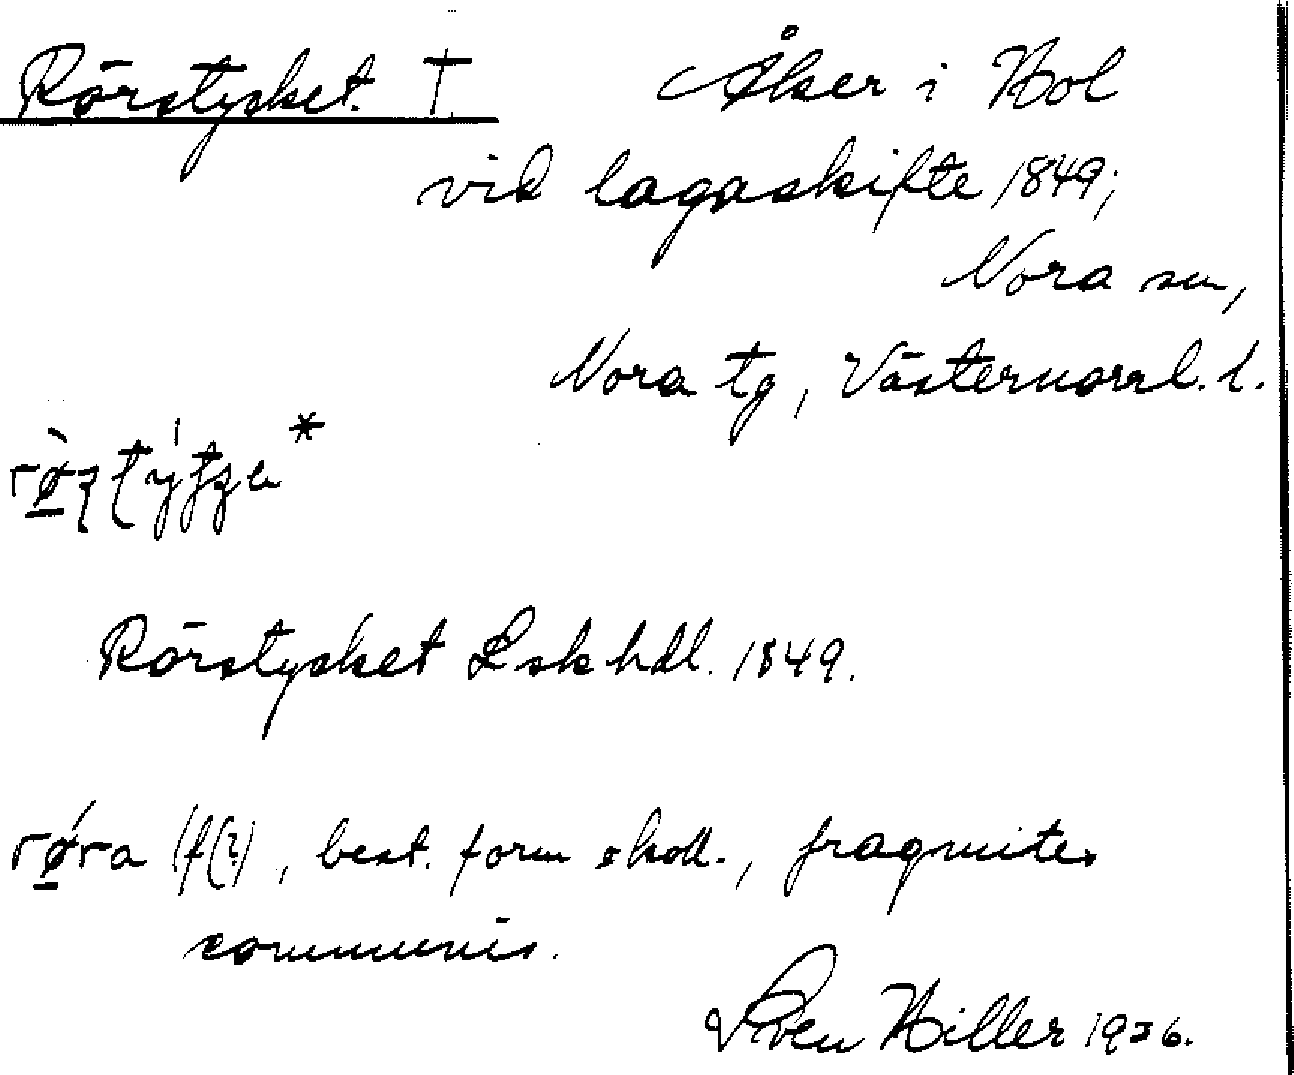 Rörstycket. †. Åker i Hol
vid lagaskifte 1849;
Nora sn,
Nora tg, Västernorrl. l.
Rörstycket Lskhdl. 1849.
rǿ̱ra (f(?), best. form koll., fragmites
communis.
Sven Hiller 1926.